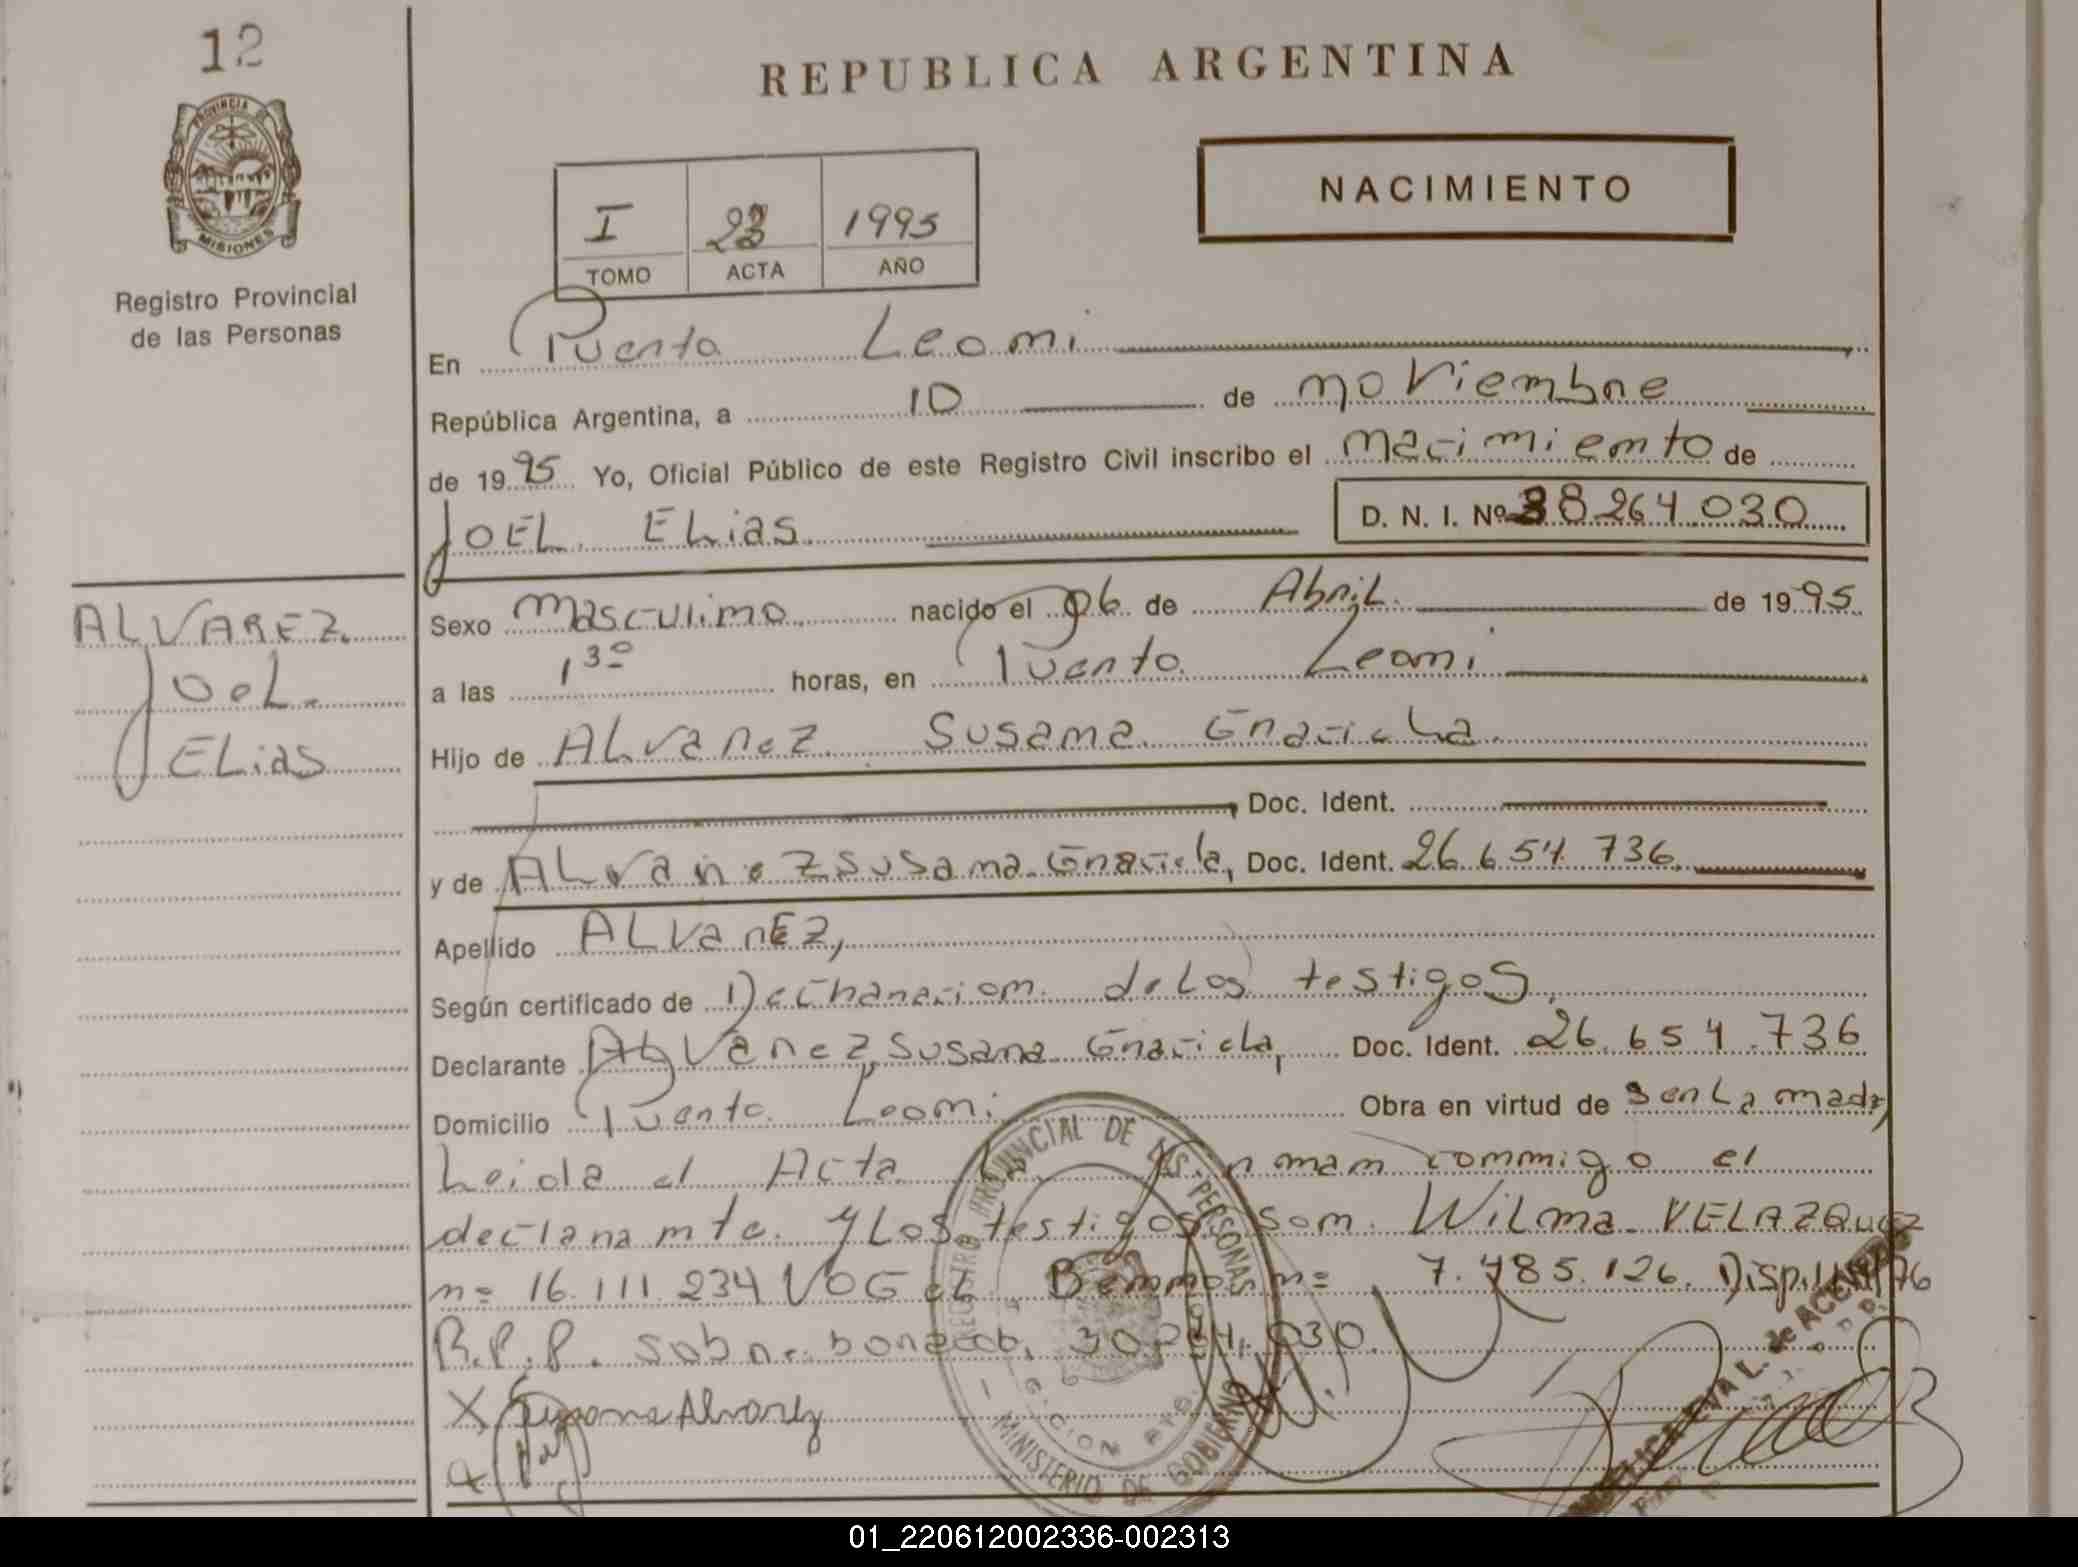 12
REPUBLICA ARGENTINA
PROVINCIA DE
MISIONES
Registro Provincial
de las Personas
NACIMIENTO
I 23 1995
TOMO ACTA AÑO
En Puerto Leoni
República Argentina, a 10 de noviembre
de 1995 Yo, Oficial Público de este Registro Civil inscribo el nacimiento de
JOEL ELias D. N. I. Nº 38 264 030
ALVAREZ
Joel
ELias
Sexo masculino nacido el 06 de Abril de 1995
a las 13º horas, en Puerto Leoni
Hijo de ALvarez Susana Graciela
Doc. Ident.
y de ALvarez Susana Graciela, Doc. Ident. 26.654.736
Apellido ALvarEZ,
Según certificado de Declaracion de Los testigos,
Declarante ALVarez Susana Graciela, Doc. Ident. 26.654.736
Domicilio Puerto Leoni Obra en virtud de Ser La madre
Leida el Acta firman conmigo el
declarante y Los testigos son Wilma VELAZQuez
n= 16.111.234 VOGeL Benno n= 7.785.126. Disp.
R.P.P. sobre borrado. 38.264.030.
X Susana Alvarez
REGISTRO PROVINCIAL DE LAS PERSONAS
MINISTERIO DE GOBIERNO
01_220612002336-002313